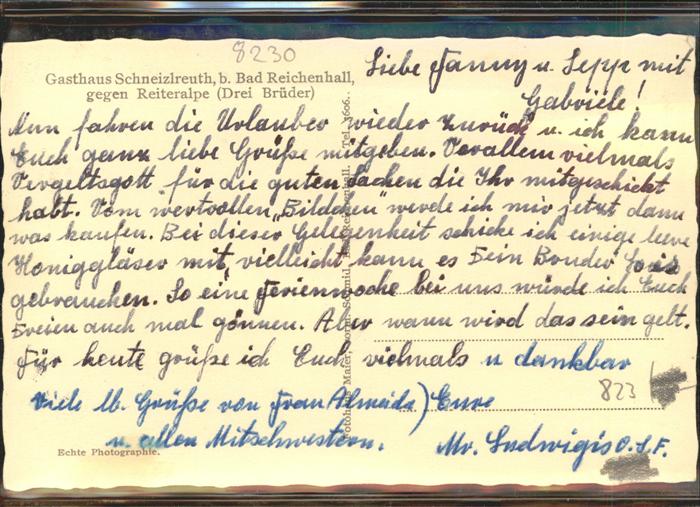 8230
Gasthaus Schneizlreuth, b. Bad Reichenhall,
gegen Reiteralpe (Drei Brüder)
Liebe Fanny u. Sepp mit
Gabriele!
Nun fahren die Urlauber wieder zurück u. ich kann
Euch ganz liebe Grüße mitgeben. Vorallem vielmals
Vergeltsgott für die guten Sachen die Ihr mitgeschickt
habt. Vom wertvollen „Bildchen" werde ich mir jetzt dann
was kaufen. Bei dieser Gelegenheit schicke ich einige leere
Honiggläser mit, vielleicht kann es Dein Bruder
gebrauchen. So eine Ferienwoche bei uns würde ich Euch
Dreien auch mal gönnen. Aber wann wird das sein gelt.
Für heute grüße ich Euch vielmals u dankbar
Viele lb. Grüße von Frau Almeida) Eure
u. allen Mitschwestern. Mr. Ludwigis O.S.F.
823
Echte Photographie.